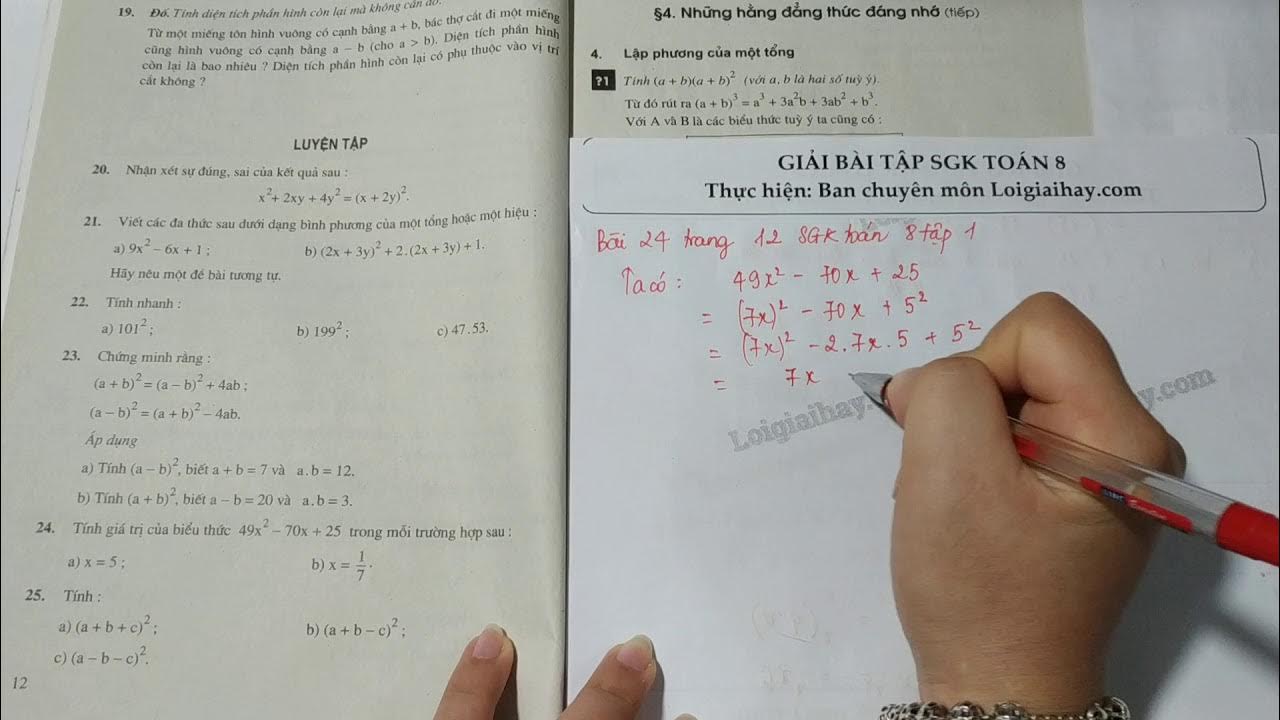 19. Đố. Tính diện tích phần hình còn lại mà không cần đo.
Từ một miếng tôn hình vuông có cạnh bằng a + b, bác thợ cắt đi một miếng
cũng hình vuông có cạnh bằng a – b (cho a > b). Diện tích phần hình
còn lại là bao nhiêu ? Diện tích phần hình còn lại có phụ thuộc vào vị trí
cắt không ?
LUYỆN TẬP
20. Nhận xét sự đúng, sai của kết quả sau :
x² + 2xy + 4y² = (x + 2y)².
21. Viết các đa thức sau dưới dạng bình phương của một tổng hoặc một hiệu :
a) 9x² – 6x + 1 ; b) (2x + 3y)² + 2.(2x + 3y) + 1.
Hãy nêu một đề bài tương tự.
22. Tính nhanh :
a) 101² ; b) 199² ; c) 47.53.
23. Chứng minh rằng :
(a + b)² = (a – b)² + 4ab ;
(a – b)² = (a + b)² – 4ab.
Áp dụng
a) Tính (a – b)², biết a + b = 7 và a.b = 12.
b) Tính (a + b)², biết a – b = 20 và a.b = 3.
24. Tính giá trị của biểu thức 49x² – 70x + 25 trong mỗi trường hợp sau :
a) x = 5 ; b) x = 1/7.
25. Tính :
a) (a + b + c)² ; b) (a + b – c)² ;
c) (a – b – c)².
12
§4. Những hằng đẳng thức đáng nhớ (tiếp)
4. Lập phương của một tổng
?1 Tính (a + b)(a + b)² (với a, b là hai số tuỳ ý).
Từ đó rút ra (a + b)³ = a³ + 3a²b + 3ab² + b³.
Với A và B là các biểu thức tuỳ ý ta cũng có :
GIẢI BÀI TẬP SGK TOÁN 8
Thực hiện: Ban chuyên môn Loigiaihay.com
Bài 24 trang 12 SGK toán 8 tập 1
Ta có : 49x² – 70x + 25
= (7x)² – 70x + 5²
= (7x)² – 2.7x.5 + 5²
= 7x
Loigiaihay.
y.com